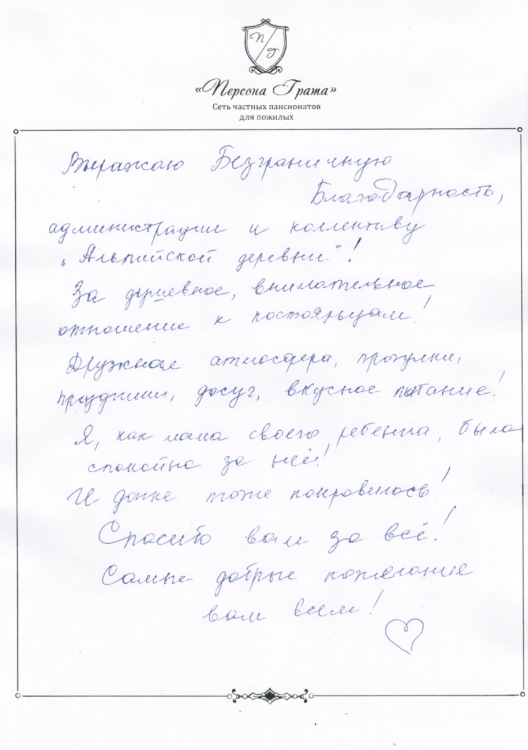 П Г
«Персона Грата»
Сеть частных пансионатов
для пожилых
Выражаю Безграничную
Благодарность,
администрации и коллективу
"Альпийской деревни"!
За душевное, внимательное
отношение к постояльцам!
Дружная атмосфера, прогулки,
праздники, досуг, вкусное питание!
Я, как мама своего ребенка, была
спокойна за неё!
И дочке тоже понравилось!
Спасибо вам за всё!
Самые добрые пожелание
вам всем!